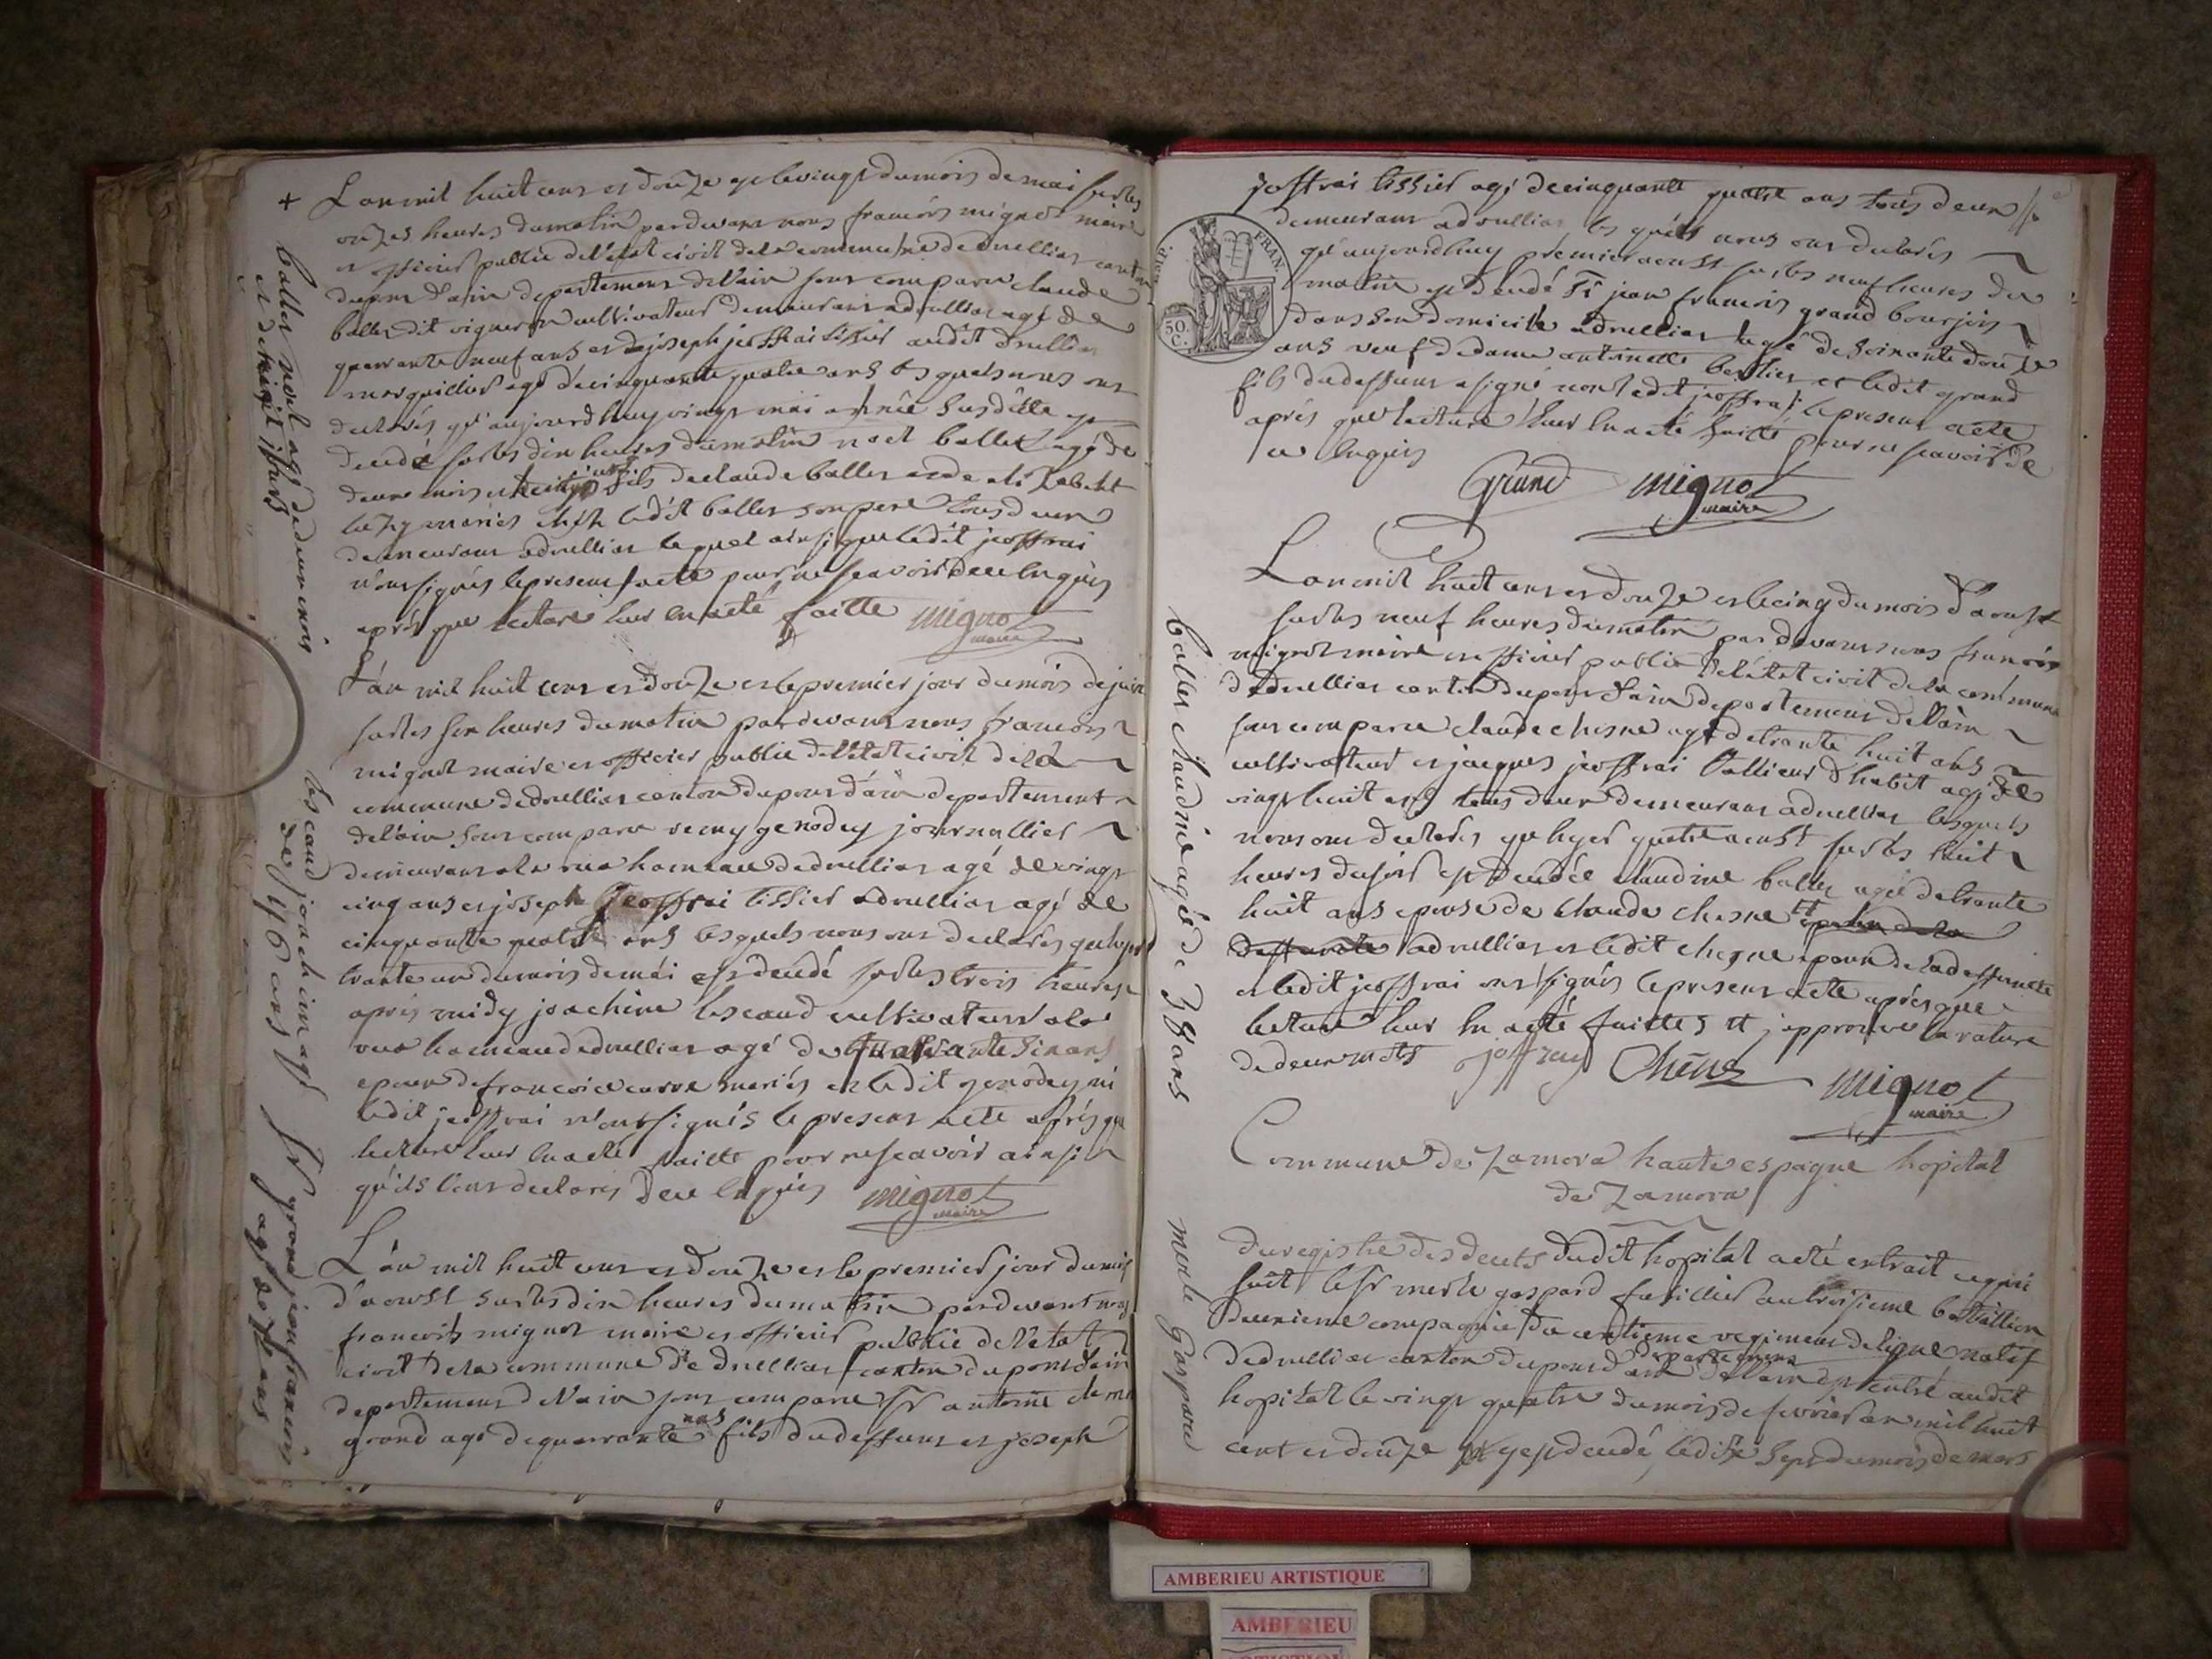 + L'an mil huit cens et douze et le vingt du mois de mai sur les
onzes heures du matin pardevans nous françois mignot maire
et officier public de l'état civil de la commune de druillias canton
du pons d'ain departement de l'ain sons comparu claude
ballet dit vigneron cultivateur demeurans a druillias agé de
quarrante neuf ans et joseph jeoffrai tissier audit druillias
marguillier agé de cinquante quatre ans les quels nous ons
declarés qu'aujourd huy vingt mai année susditte est
decedé sur les dix heures du matin noel ballet agé de
deux mois et jours fils de claude ballet et de elizabeth
mariés ledit ballet son pere tous deux
demeurans a druillias lequel ainsi que ledit jeoffrai
n'ons signés le presens acte pour ne scavoir de ce enquis
après que lecture leur en a eté faitte mignot
maire
ballet noel agé de deux mois
et jours
L'an mil huit cens et douze et le premier jour du mois de juin
sur les six heures du matin pardevans nous françois
mignot maire et officier public de l'état civil de la
commune de druillias canton du pons d'ain departement
de l'ain sons comparu remy genodey journallier
demeurans a la rua hameau de druillias agé de vingt
cinq ans et joseph jeoffrai tissier a druillias agé de
cinquante quatre ans lesquels nous ons declarés qu'hyer
trante un du mois de mai est decedé sur les trois heures
après midy joachim lescaud cultivateur a la
rua hameau de druillias agé de quarrante six ans
epoux de francoise mariés et ledit genodey ni
ledit jeoffrai n'ont signés le presens acte après que
lecture leur en a eté faitte pour ne scavoir ainsi
qu'ils l'ons declarés de ce enquis mignot
maire
lescaud joachim agé
de 46 ans
L'an mil huit cens et douze et le premier jour du mois
d'aoust sur les dix heures du matin pardevant nous
francois mignot maire et officier public de l'etat
civil de la commune de druillias canton du pons d'ain
departemens de l'ain sons comparu Sr antoine
grand agé de quarrante ans fils du deffuns et joseph
Sr grand jean francois
agé de 72 ans
jeoffrai tissier agé de cinquante quatre ans tous deux
demeurans a druillias les quels nous ons declarés
qu'aujourd huy premier aoust sur les neuf heures du
matin est decedé Sr jean francois grand bourjois
dans son domicile a druillias agé de soixante douze
ans veuf de dame antoinette berlier et ledit grand
fils du deffuns a signé non ledit jeoffrai le presens acte
après que lecture leur en a eté faitte pour ne scavoir de
ce enquis
TIMP. FRAN.
50.
C.
Grand mignot
maire
L'an mil huit cens et douze et le cinq du mois d'aoust
sur les neuf heures du matin pardevans nous françois
mignot maire et officier public de l'état civil de la commune
de druillias canton du pons d'ain departemens de l'ain
sons comparu claude chesne agé de trante huit ans
cultivateur et jacques jeoffrai tallieur d'habit agé de
vingt huit ans tous deux demeurans a druillias lesquels
nous ons declarés qu'hyer quatre aoust sur les huit
heures du soir est decedée claudine ballet agée de trante
huit ans epouse de claude chesne et epoux de la
deffunte a druillias et ledit chesne epoux de la deffunte
et ledit jeoffrai ons signés le presens acte après que
lecture leur en a eté faitte et j'approuve la rature
de deux mots joffrey Chêne mignot
maire
ballet claudine agée de 38 ans
Commune de Zamora haute espagne hopital
de Zamora
Du registre des decets dudit hopital a eté extrait ce qui
suit le Sr merle gaspard fusillier au troisieme batallion
deuxieme compagnie du centieme regimens de ligne natif
de druillias canton du pons d'ain departemens de l'ain est entré audit
hopital le vingt quatre du mois de fevrier an mil huit
cent et douze et y est decedé le dix sept du mois de mars
merle gaspard
AMBERIEU ARTISTIQUE
AMBERIEU